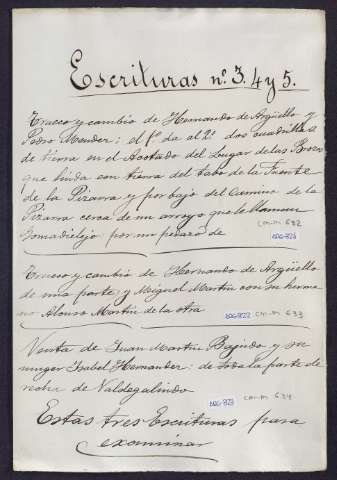 Escrituras nº. 3. 4 y 5.
Trueco y cambio de Hernando de Argüello y
Pedro Mender; el 1º da al 2º dos cuadrillas
de tierra en el Acotado del Lugar de las Brozas
que linda con tierra del Cabo de la Fuente
de la Pizarra y por bajo del Camino de la
Pizarra cerca de un arroyo que le llaman
por un pedazo de
Trueco y cambio de Hernando de Argüello
de una parte y Miguel Martin con su herma
no Alonso Martin de la otra
Venta de Juan Martin y su
muger Isabel Hernander: de toda la parte de
de Valdegalindo
Estas tres Escrituras para
examinar